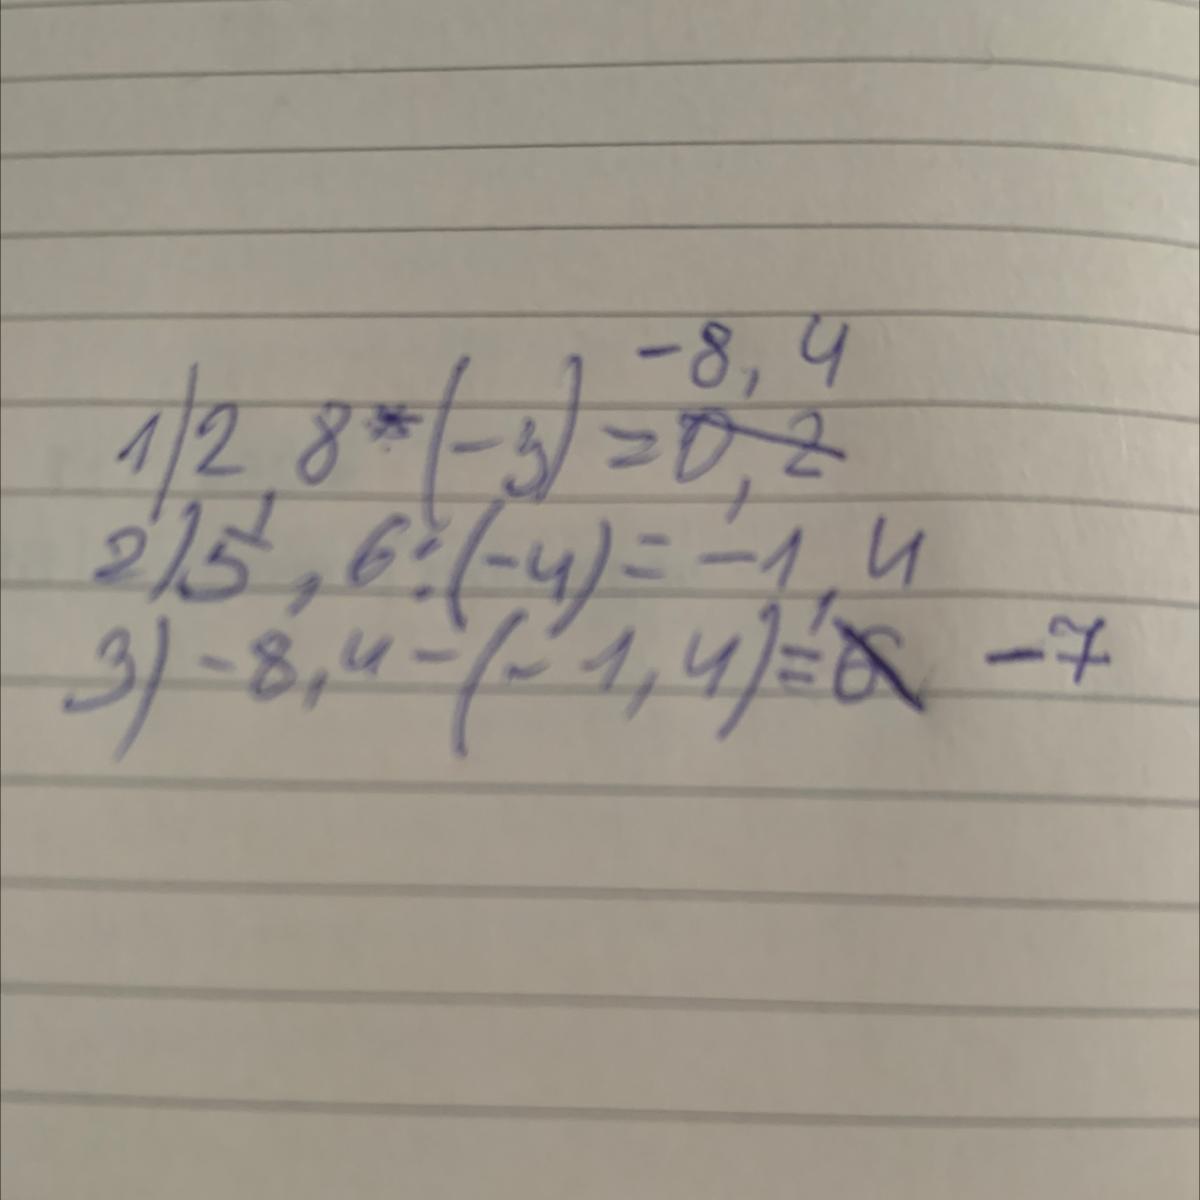 -8,4
1) 2,8*(-3) = 0,2
2) 5,6:(-4) = -1,4
3) -8,4-(-1,4) = 6 -7